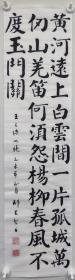 黃河遠上白雲間一片孤城萬
仞山羌笛何須怨楊柳春風不
度玉門關